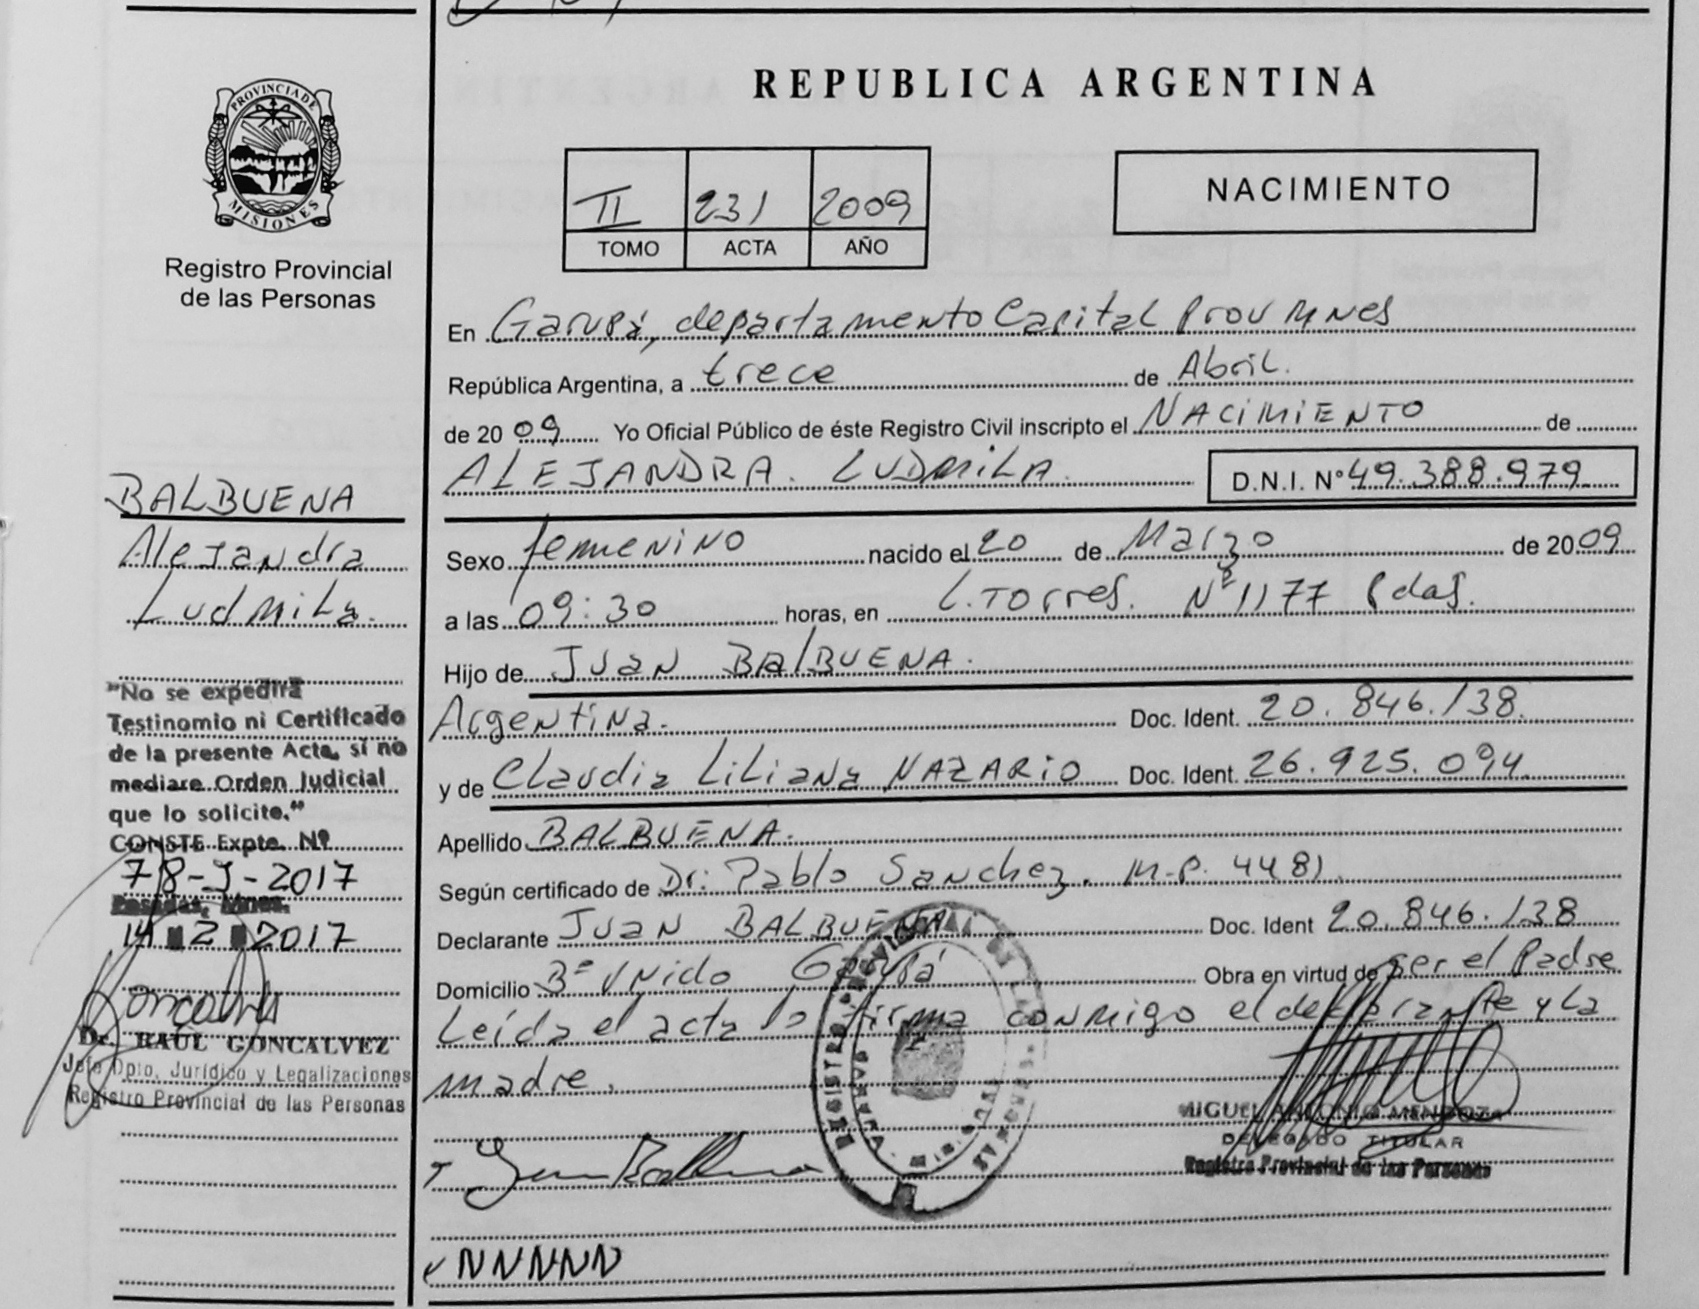 REPUBLICA ARGENTINA
PROVINCIA DE
MISIONES
Registro Provincial
de las Personas
II 231 2009
TOMO ACTA AÑO
NACIMIENTO
En Garupá, departamento Capital Prov Mnes
República Argentina, a trece de Abril.
de 2009 Yo Oficial Público de éste Registro Civil inscripto el NACIMIENTO de
ALEJANDRA. LUDMILA. D.N.I. Nº 49.388.979
Sexo femenino nacido el 20 de Marzo de 2009
a las 09:30 horas, en L. Torres. Nº 1177 Pdas.
Hijo de Juan BALBUENA.
Argentina. Doc. Ident. 20.846.138.
y de Claudia Liliana NAZARIO Doc. Ident. 26.925.094
Apellido BALBUENA.
Según certificado de Dr. Pablo Sanchez. M.P. 4481
Declarante Juan BALBUENA Doc. Ident 20.846.138
Domicilio Bº Unido Garupá Obra en virtud de ser el Padre
Leída el acta la firma conmigo el declarante y la
madre.
MIGUEL ANTONIO MENDOZA
DELEGADO TITULAR
Registro Provincial de las Personas
NNNNN
BALBUENA
Alejandra
Ludmila.
"No se expedirá
Testinomio ni Certificado
de la presente Acta, sí no
mediare Orden Judicial
que lo solicite."
CONSTE Expte. Nº
78-J-2017
Posadas, Mnes.
14 2 2017
Dr. RAÚL GONCALVEZ
Jefe Dpto. Jurídico y Legalizaciones
Registro Provincial de las Personas